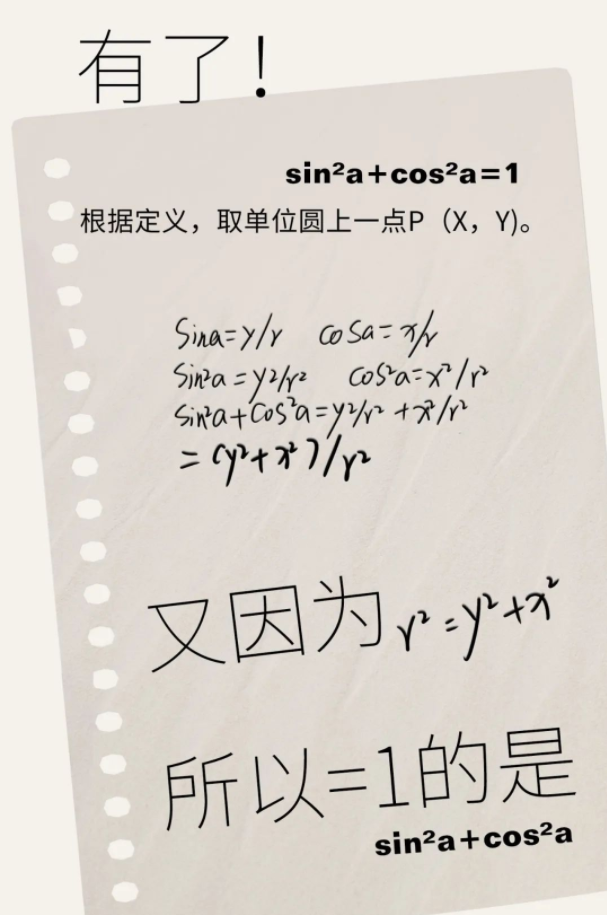 有了！
sin²a+cos²a=1
根据定义，取单位圆上一点P（X，Y)。
Sina=y/r cosa=x/r
Sin²a=y²/r² cos²a=x²/r²
Sin²a+cos²a=y²/r²+x²/r²
=(y²+x²)/r²
又因为r²=y²+x²
所以=1的是
sin²a+cos²a